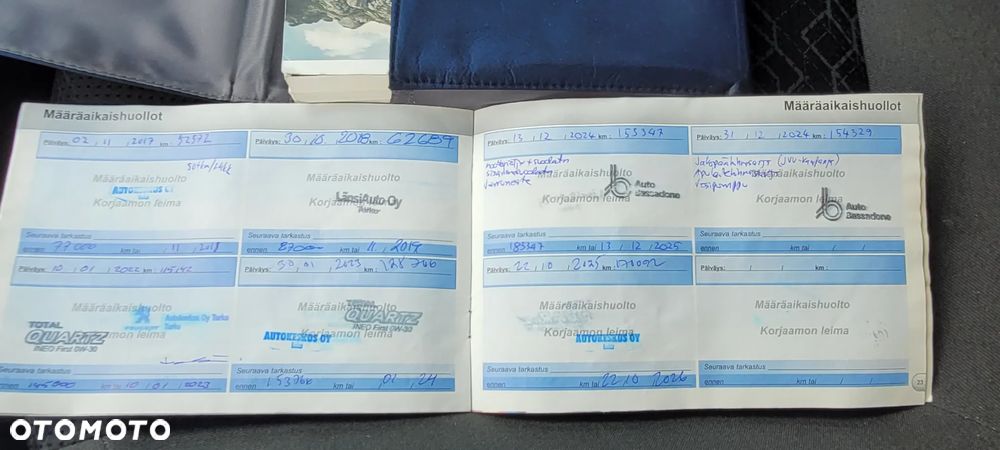 Määräaikaishuollot
Päiväys: 02 , 11 , 2017 km: 52572
Määräaikaishuolto
AUTOKESKUS OY
Korjaamon leima
Seuraava tarkastus
ennen 77000 km tai / 11 , 2018
Päiväys: 30 , 10 , 2018 km: 62689
Määräaikaishuolto
LänsiAuto Oy
Turku
Korjaamon leima
Seuraava tarkastus
ennen km tai 11 , 2019
Päiväys: 10 , 01 , 2022 km: 115142
Määräaikaishuolto
TOTAL
QUARTZ
INEO First 0W-30
Autokeskus Oy Turku
Turku
Korjaamon leima
Seuraava tarkastus
ennen 145000 km tai 10 / 01 / 2023
Päiväys: 30 , 01 , 2023 km: 128766
Määräaikaishuolto
QUARTZ
INEO First 0W-30
Korjaamon leima
AUTOKESKUS OY
Seuraava tarkastus
ennen 153766 km tai , 01 , 24
Määräaikaishuollot
Päiväys: 13 , 12 , 2024 km: 153347
Määräaikaishuolto
Auto
Bassadone
Korjaamon leima
Seuraava tarkastus
ennen 183347 km tai 13 / 12 , 2025
Päiväys: 31 , 12 , 2024 km: 154329
Määräaikaishuolto
Korjaamon leima
Auto
Bassadone
Seuraava tarkastus
ennen km tai / /
Päiväys: 22 , 10 , 2025 km: 170092
Määräaikaishuolto
Korjaamon leima
AUTOKESKUS OY
Seuraava tarkastus
ennen km tai 22 / 10 2026
Päiväys: / / km:
Määräaikaishuolto
Korjaamon leima
Seuraava tarkastus
ennen km tai / /
23
OTOMOTO